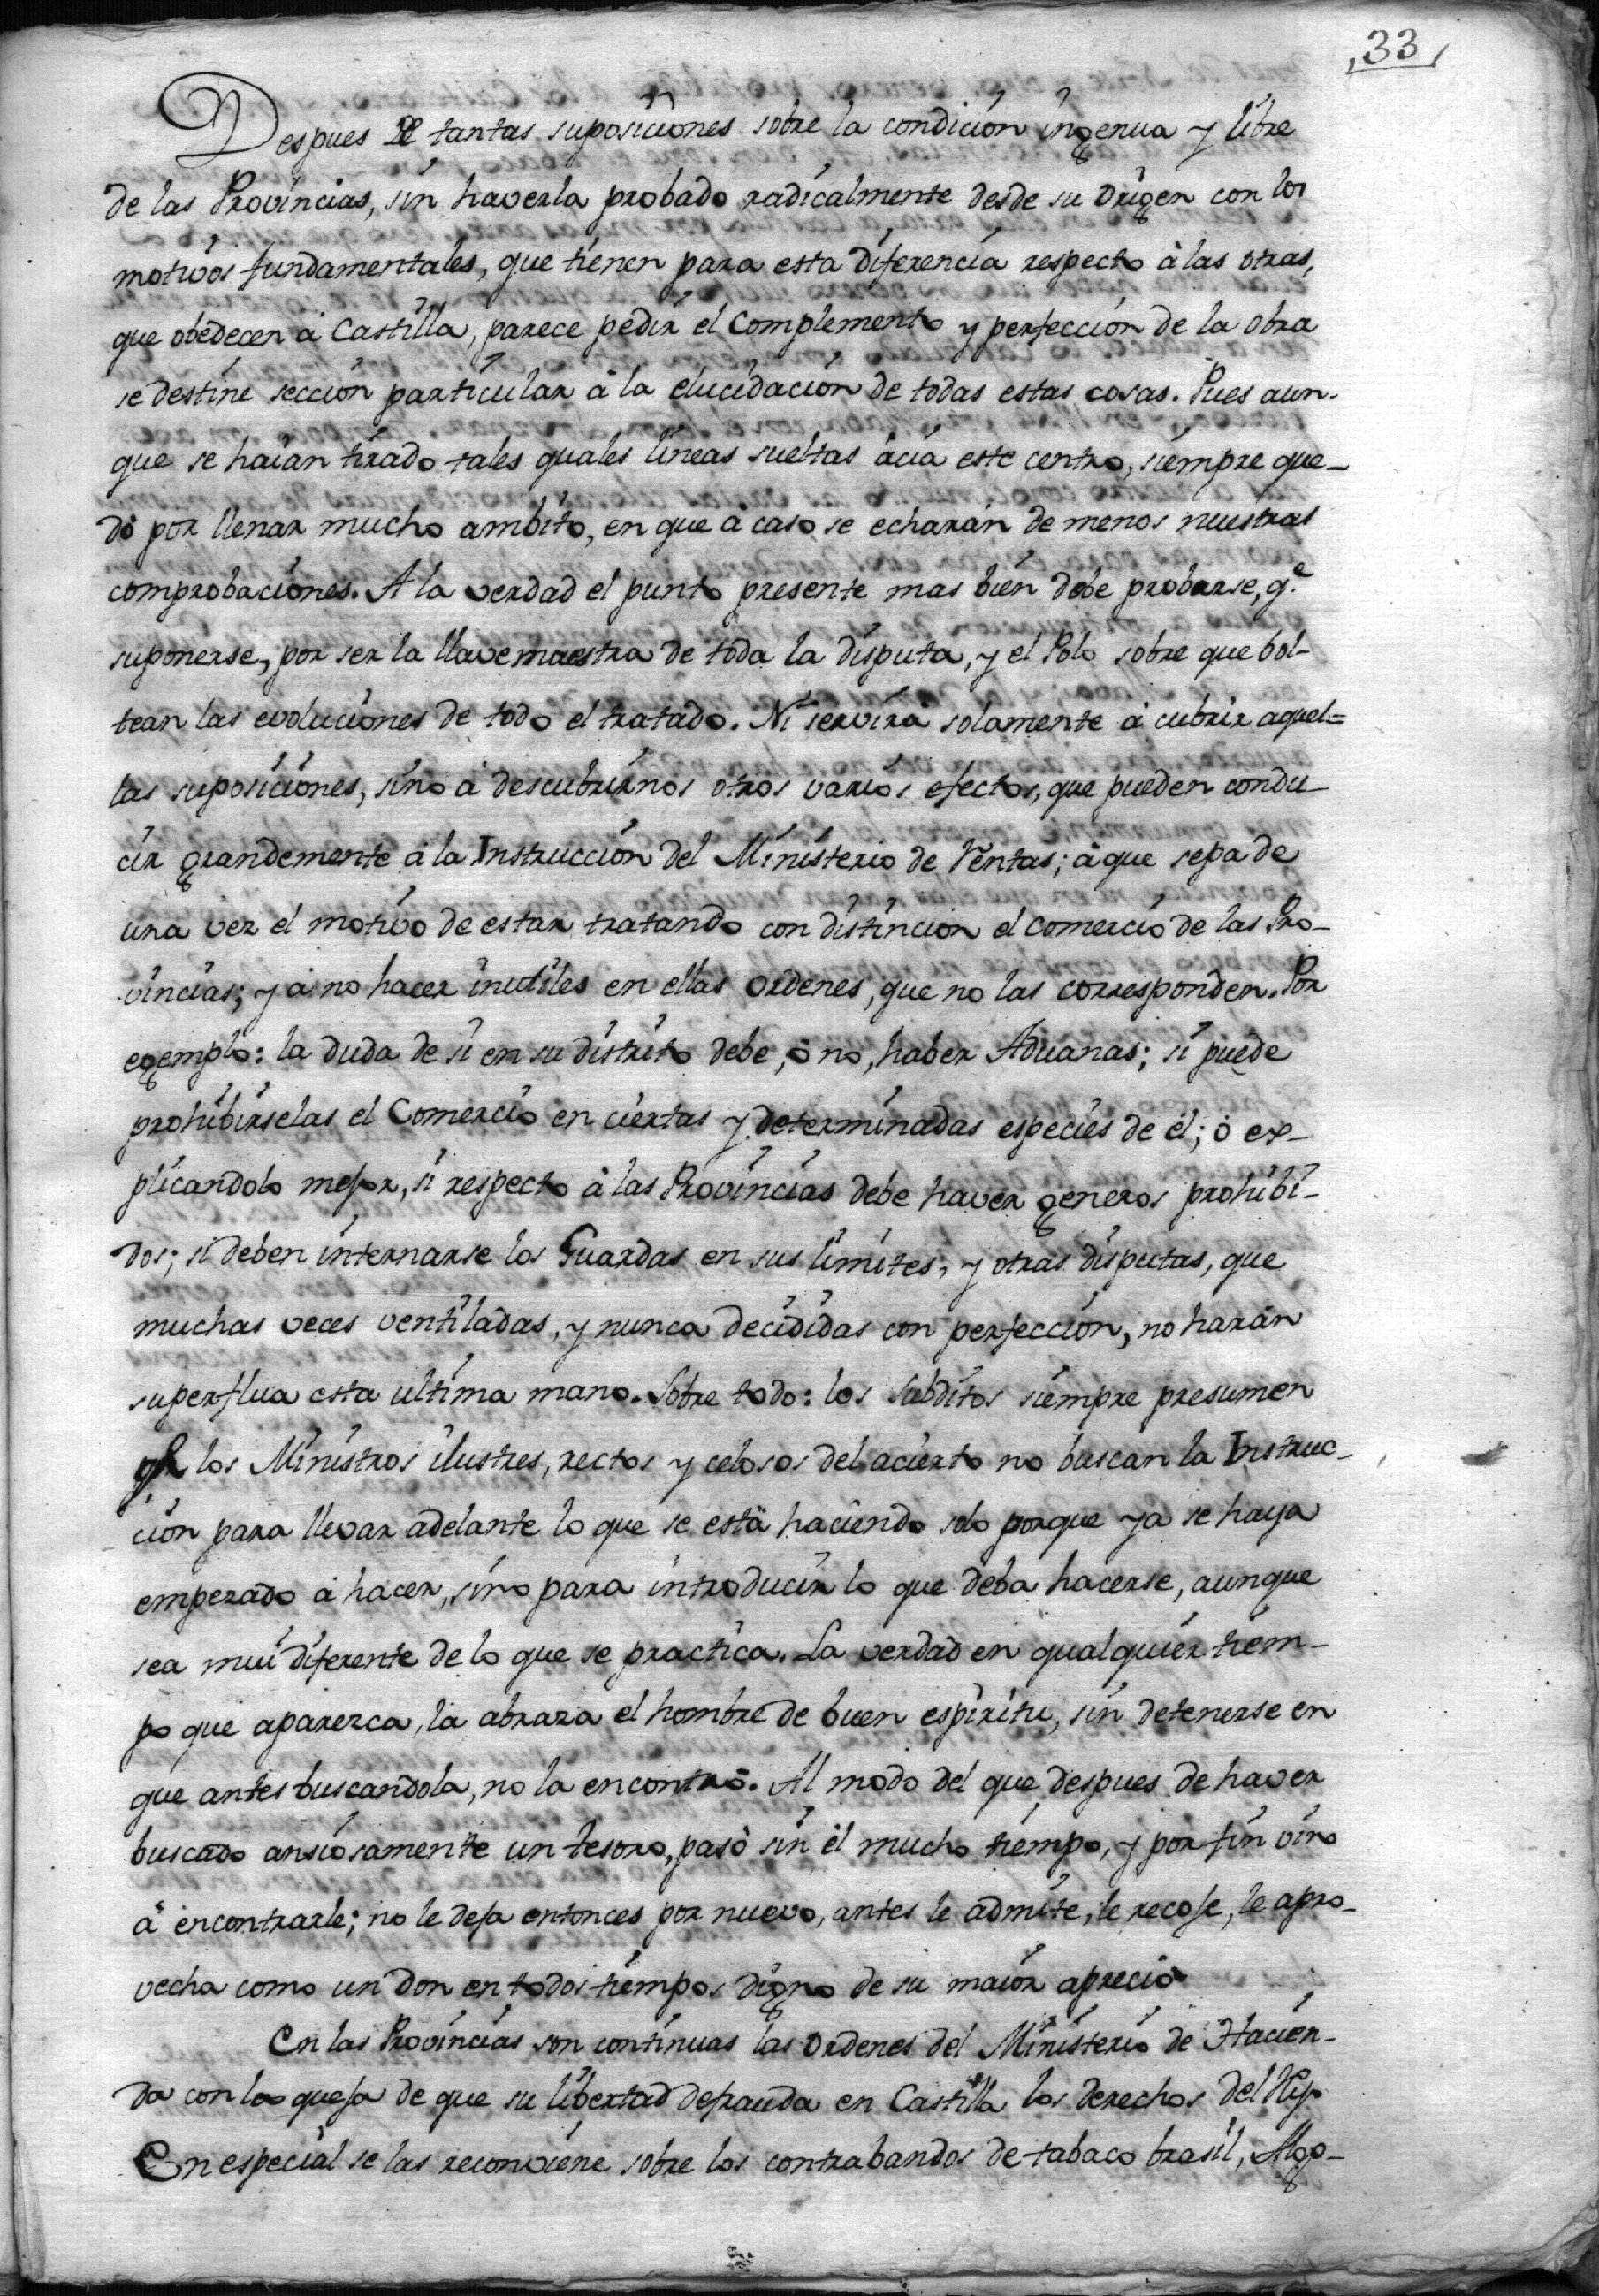 33
Despues de tantas suposiciones sobre la condición ingenua y libre
de las Provincias, sin haverla probado radicalmente desde su origen con los
motivos fundamentales, que tienen para esta diferencia respecto à las otras,
que obedecen à Castilla, parece pedir el Complemento y perfección de la obra
se destine sección particular à la elucidación de todas estas cosas. Pues aun-
que se haian tirado tales quales lineas sueltas àcia este centro, siempre que-
dò por llenar mucho ambito, en que à caso se echaràn de menos nuestras
comprobaciones. A la verdad el punto presente mas bien debe probarse, q.e
suponerse, por ser la llave maestra de toda la disputa, y el Polo sobre que bol-
tean las evoluciones de todo el tratado. Ni servirà solamente à cubrir aquel=
las suposiciones, sino à descubrirnos otros varios efectos, que pueden condu-
cir grandemente à la Instrucción del Ministerio de Rentas; à que sepa de
una vez el motivo de estar tratando con distincion el comercio de las Pro-
vincias; y à no hacer inutiles en ellas ordenes, que no las corresponden. Por
egemplo: la duda de si en su distrito debe, ò no, haber Aduanas; si puede
prohibirselas el Comercio en ciertas y determinadas especies de èl; ò ex-
plicandolo mejor, si respecto à las Provincias debe haver generos prohibi-
dos; si deben internarse los Guardas en sus limites, y otras disputas, que
muchas veces ventiladas, y nunca decididas con perfección, no haràn
superflua esta ultima mano. Sobre todo: los subditos siempre presumen
los Ministros ilustres, rectos y celosos del acierto no buscan la Instruc-
ción para llevar adelante lo que se està haciendo solo porque ya se haya
empezado à hacer, sino para introducir lo que deba hacerse, aunque
sea mui diferente de lo que se practica. La verdad en qualquier tiem-
po que aparezca, la abraza el hombre de buen espiritu, sin detenerse en
que antes buscandola, no la encontrò. Al modo del que despues de haver
buscado ansiosamente un tesoro, pasò sin èl mucho tiempo, y por fin vino
à encontrarle; no le deja entonces por nuevo, antes le admite, le recoje, le apro-
vecha como un don en todos tiempos digno de su maior aprecio
En las Provincias son continuas las ordenes del Ministerio de Hacien-
da con la queja de que su libertad defrauda en Castilla los derechos del
En especial se las reconviene sobre los contrabandos de tabaco brasil, Algo-